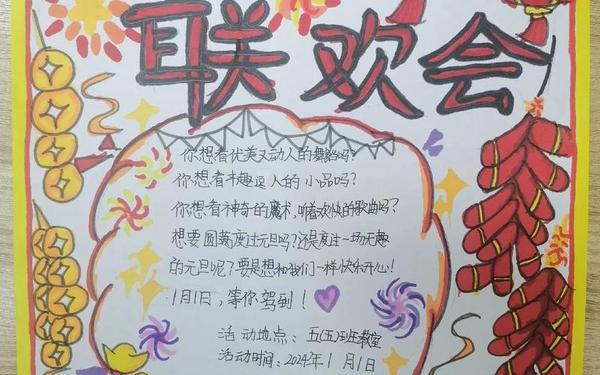 联欢会
你想看优美又动人的舞蹈吗?
你想看趣逗人的小品吗?
你想看神奇的魔术,听着欢快的歌曲吗?
想要圆满度过元旦吗?还是度过一场无趣
的元旦呢?要是想和我们一样快乐开心!
1月1日,等你驾到!
活动地点:五(五)班教室
活动时间:2024年1月1日